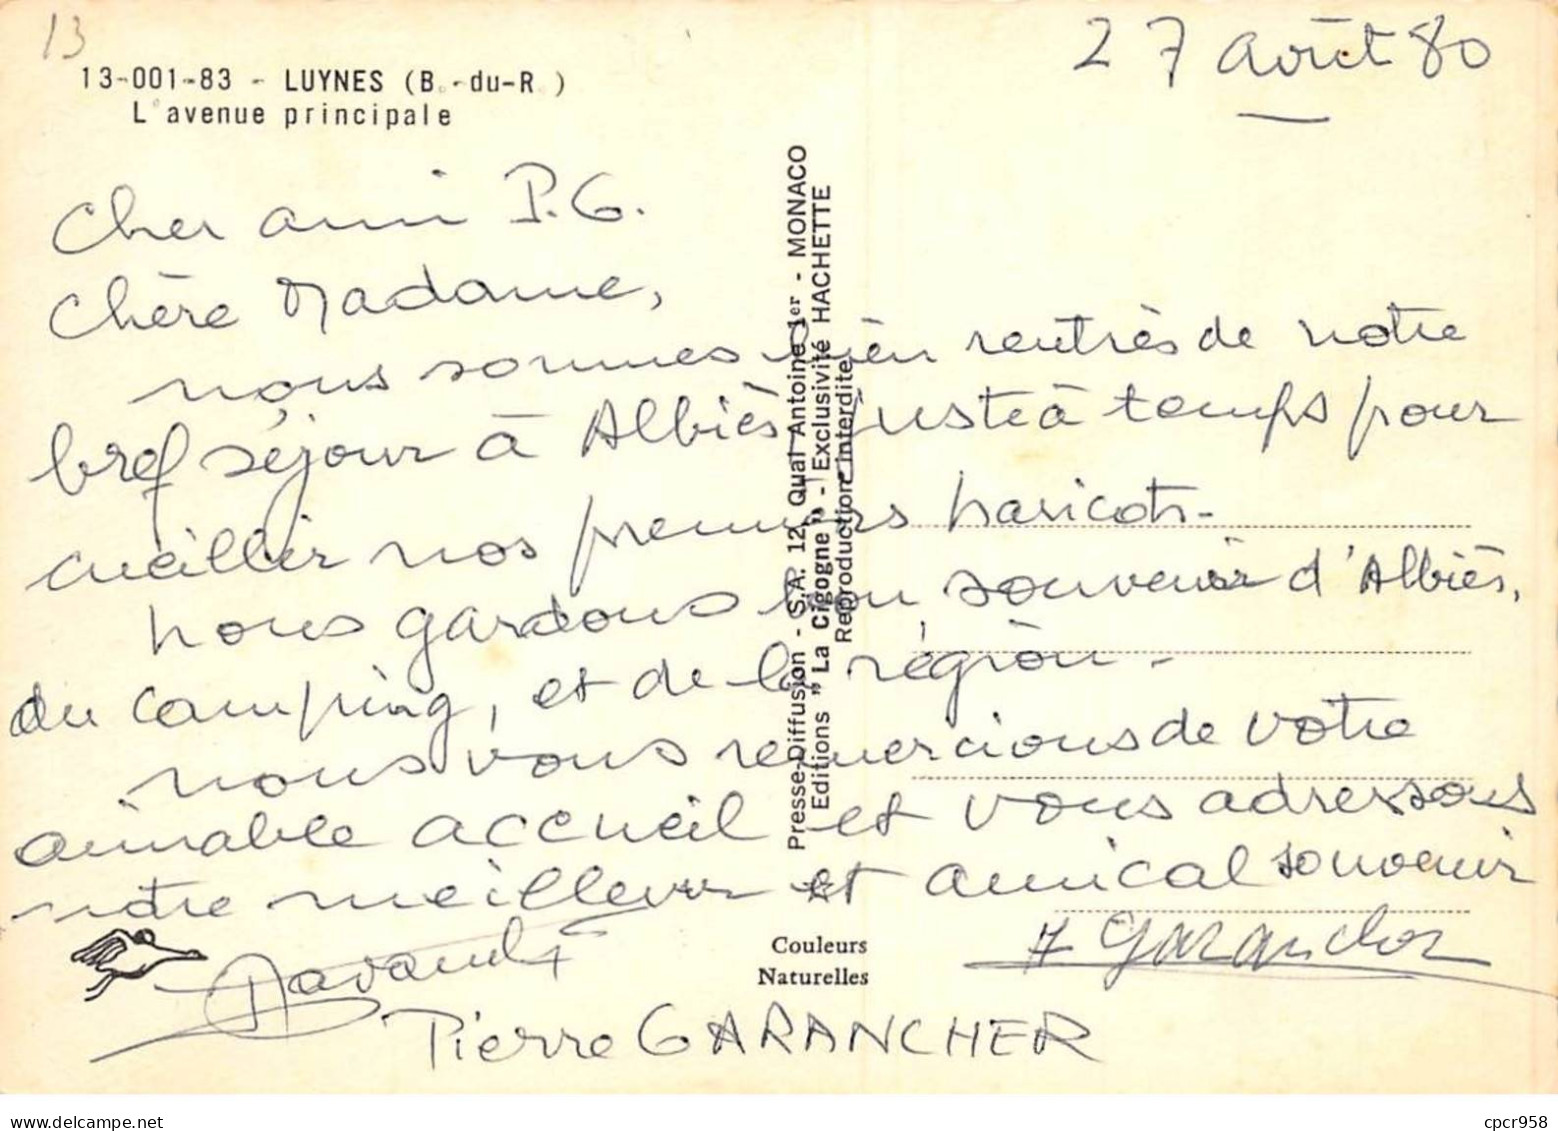 13
27 août 80
13-001-83 - LUYNES (B.-du-R.)
L'avenue principale
Cher ami P.G.
Chère Madame,
nous sommes bien rentrés de notre
bref séjour à Albiès, juste à temps pour
cueillir nos premiers haricots -
Nous gardons bon souvenir d'Albiès,
du camping, et de la région -
nous vous remercions de votre
aimable accueil et vous adressons
notre meilleur et amical souvenir
Garancher
Pierre GARANCHER
Presse-Diffusion - S.A. 12, Quai Antoine 1er - MONACO
Editions " La Cigogne " - Exclusivité HACHETTE
Reproduction Interdite
Couleurs
Naturelles
cpcr958